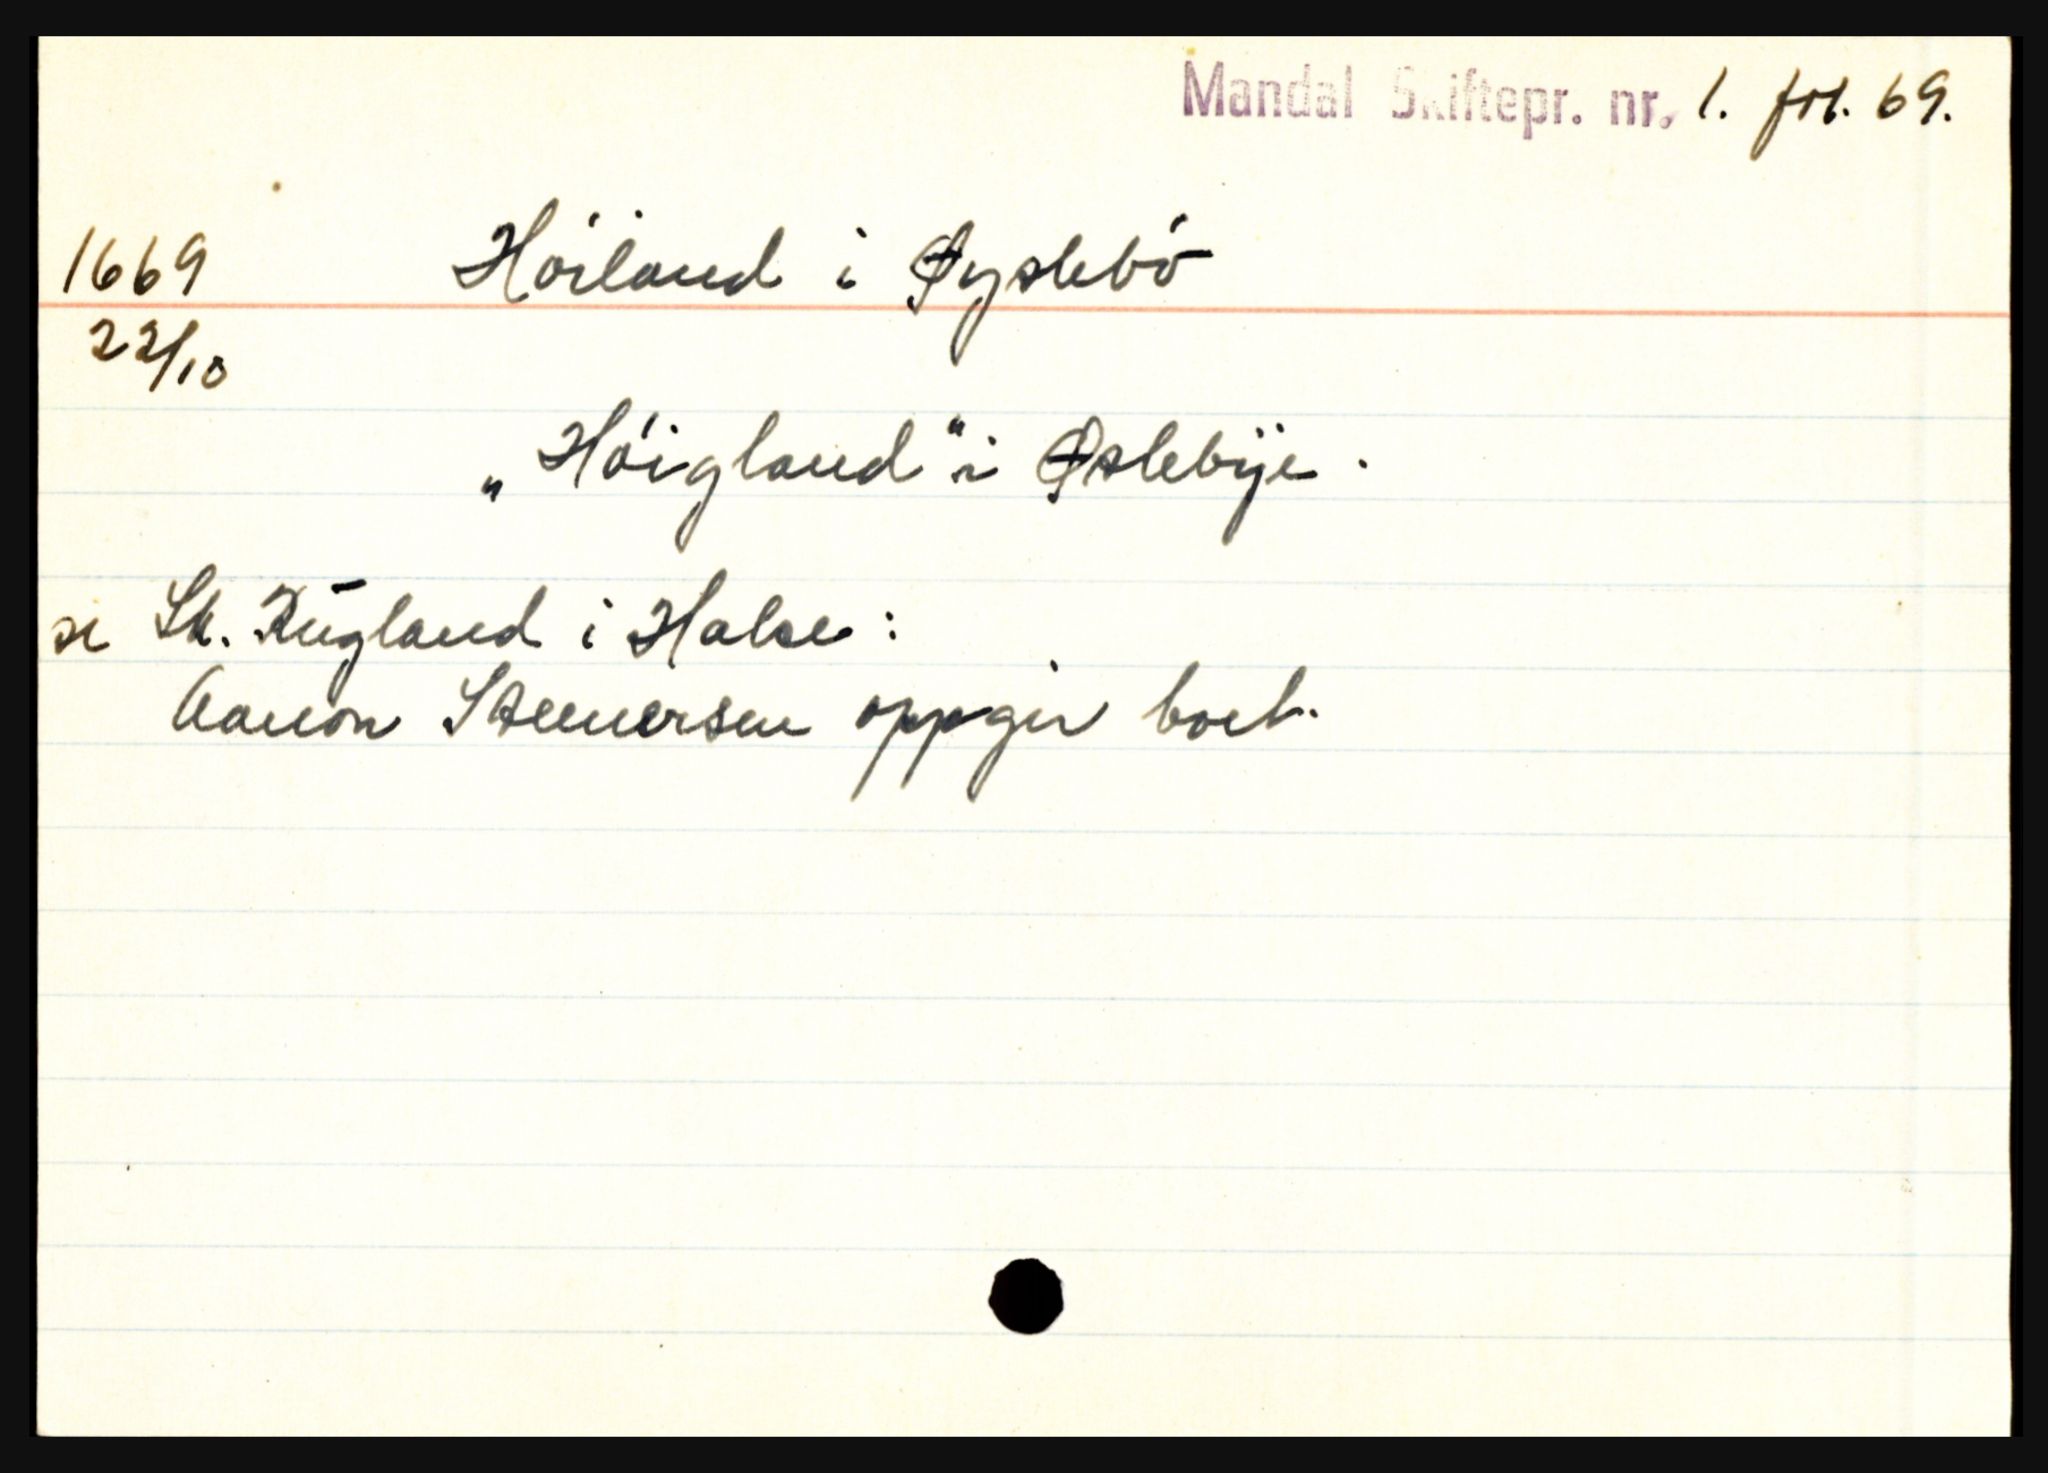 Mandal Skiftepr. nr. 1. fol. 69.
1669 Höiland i Øyslebö
22/10
„Höigland“ i Øslebÿe.
se Sk. Rugland i Halse:
Aanon Steenersen oppgir boet.